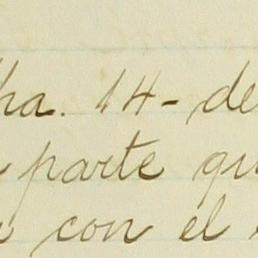 ha. 14- de
parte qu
con el